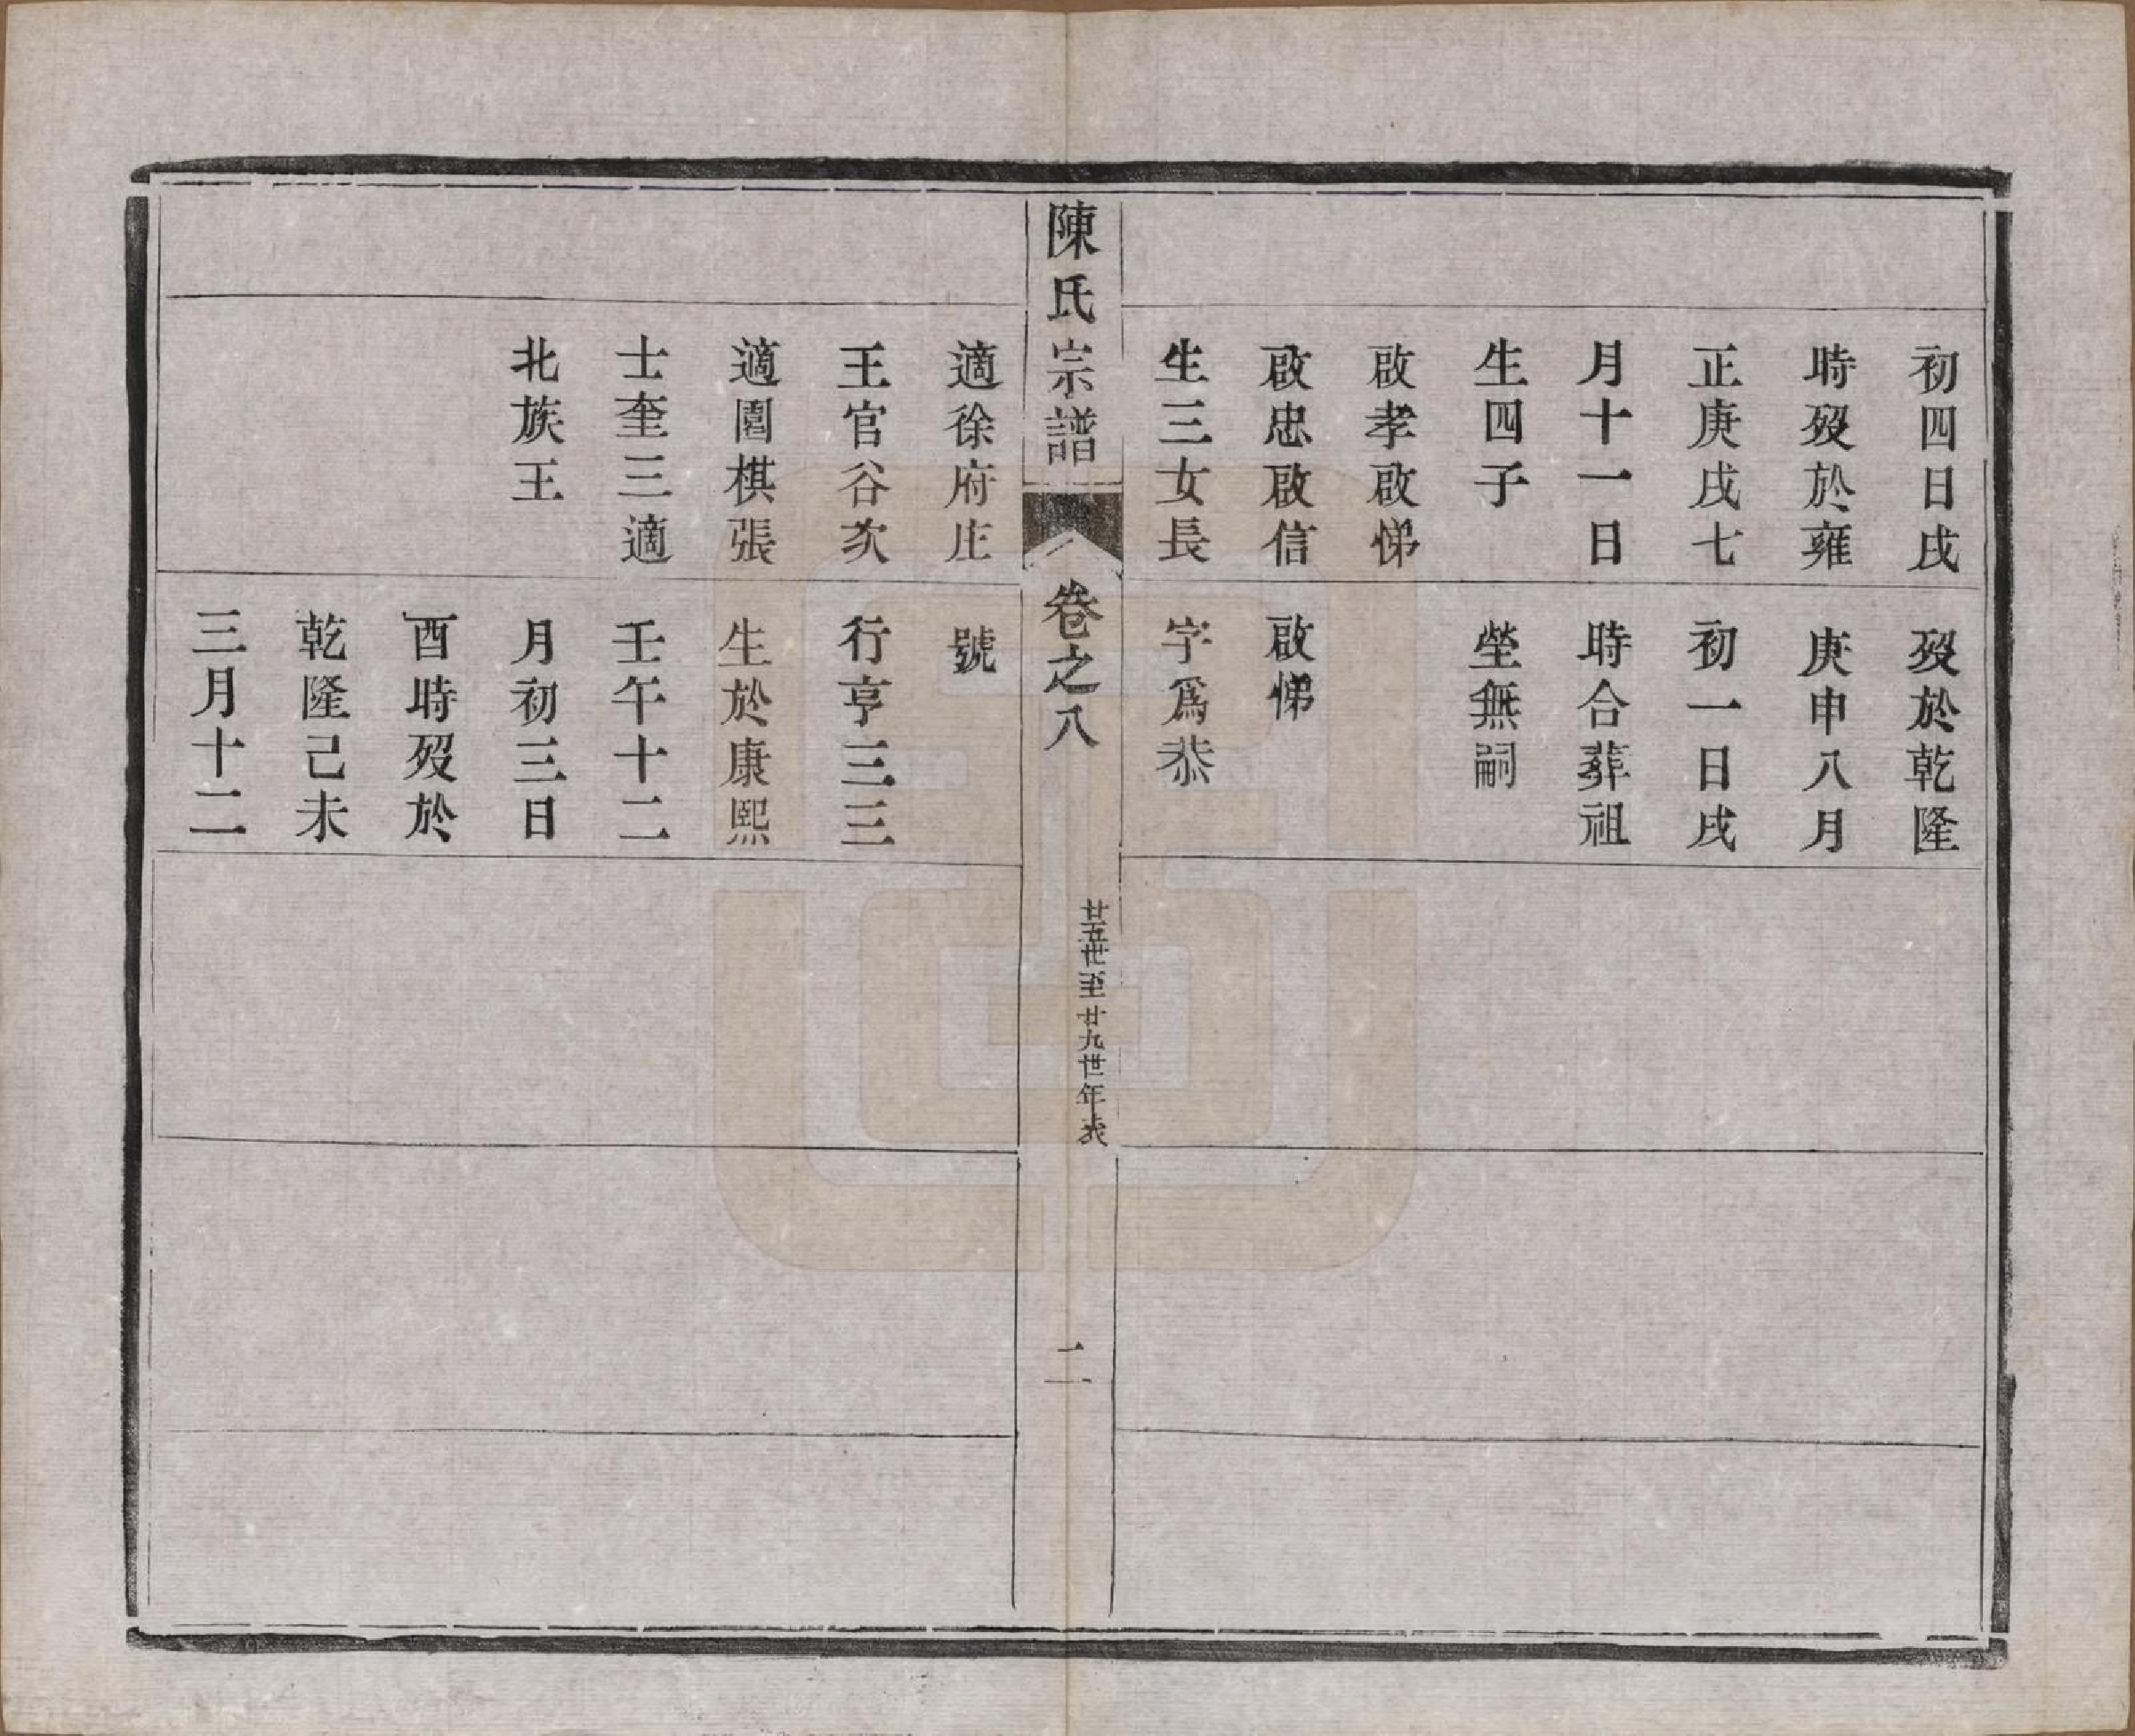 初四日戌
時歿於雍
正庚戌七
月十一日
生四子
啟孝啟悌
啟忠啟信
生三女長
歿於乾隆
庚申八月
初一日戌
時合葬祖
塋無嗣
啟悌
字爲恭
陳氏宗譜
卷之八
廿五世至廿九世年表
二
適徐府庄
王官谷次
適圍棋張
士奎三適
北族王
號
行亨三三
生於康熙
壬午十二
月初三日
酉時歿於
乾隆己未
三月十二